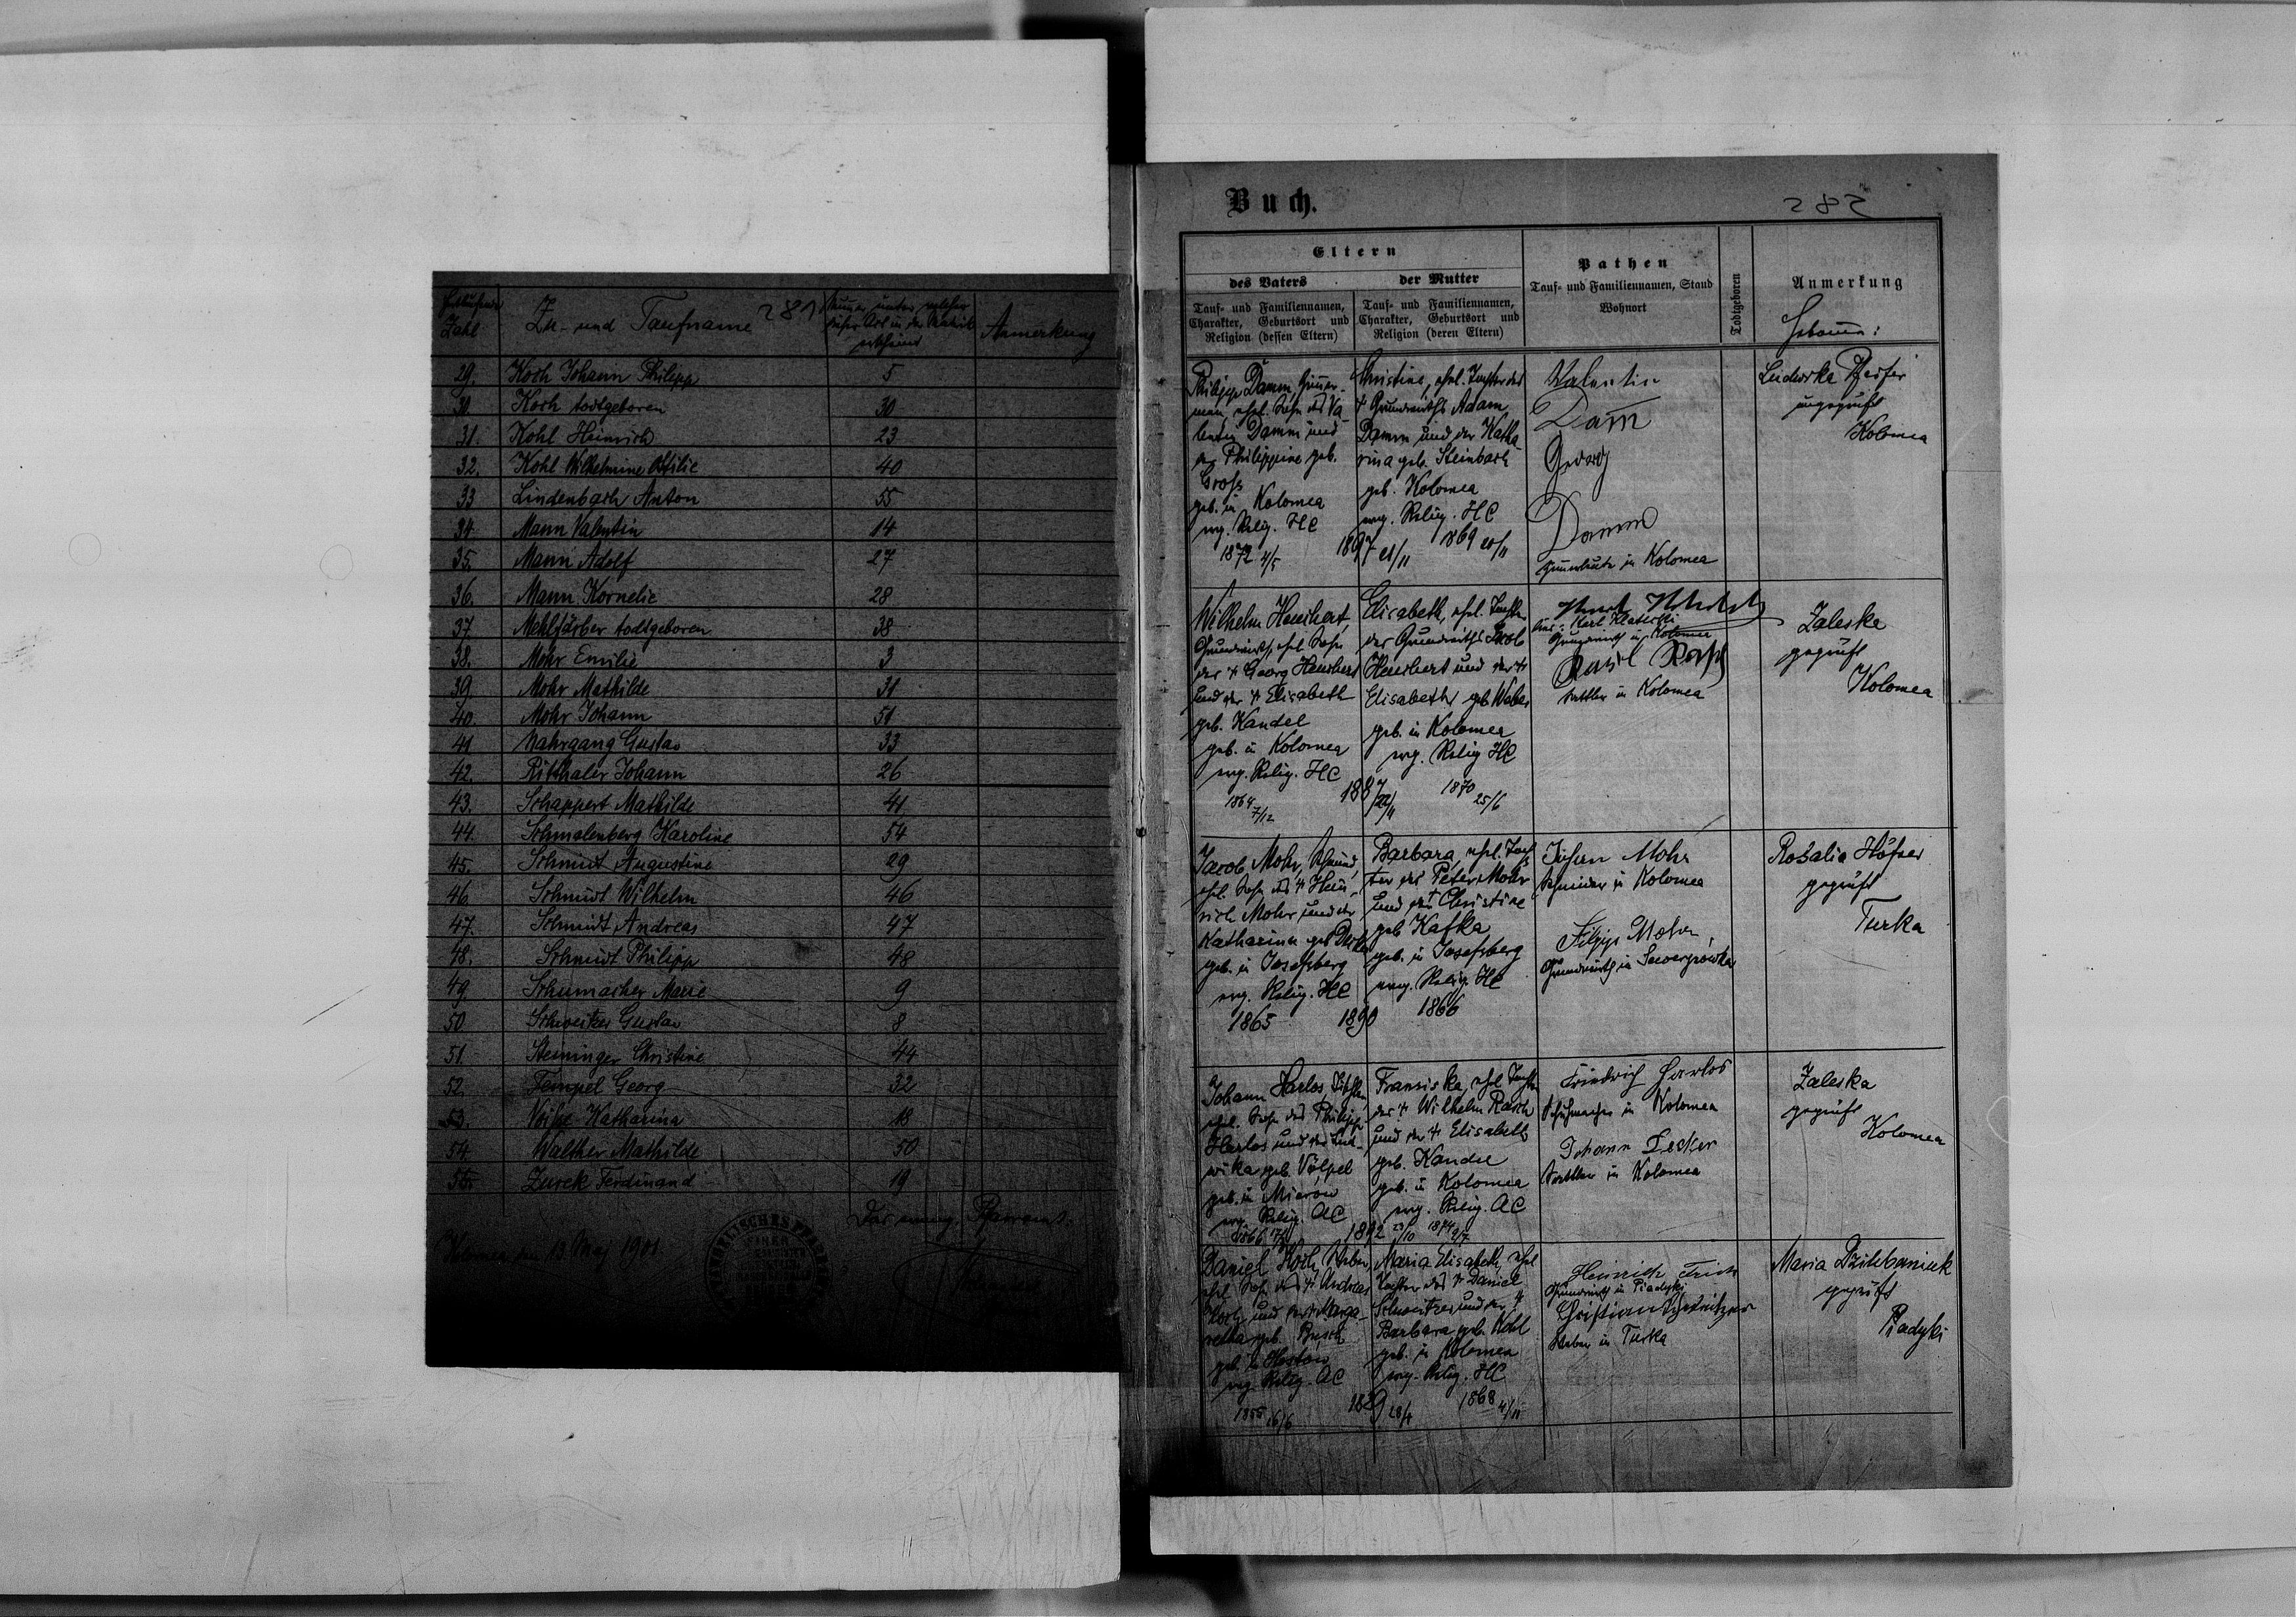 Zahl
Zu- und Taufname
281
Anmerkung
29. Koch Johann Philipp 5
30. Koch todtgeboren 30
31. Kohl Heinrich 23
32. Kohl Wilhelmine Ottilie 40
33 Lindenbach Anton 55
34. Mann Valentin 14
35. Mann Adolf 27
36. Mann Kornelie 28
37. Mehlfärber todtgeboren 38
38. Mohr Emilie 3
39. Mohr Mathilde 31
40. Mohr Johann 51
41 Nahrgang Gustav 33
42. Ritthaler Johann 26
43. Schappert Mathilde 41
44. Schmalenberg Karoline 54
45. Schmidt Augustine 29
46. Schmidt Wilhelm 46
47. Schmidt Andreas 47
48. Schmidt Philipp 48
49. Schumacher Marie 9
50 Schweitzer Gustav 8
51. Steininger Christine 44
52. Tempel Georg 32
53. Katharina 18
54 Walther Mathilde 50
55. Zurek Ferdinand 19
Das evang. Pfarramt.
Kolomea, den 13 Maj 1901.
Buch.
282
Eltern
des Vaters
der Mutter
Tauf- und Familiennamen,
Charakter, Geburtsort und
Religion (dessen Eltern)
Tauf- und Familiennamen,
Charakter, Geburtsort und
Religion (deren Eltern)
Pathen
Tauf- und Familiennamen, Stand
Wohnort
Todtgeboren
Anmerkung
Philipp Damm,
ehel. Sohn des Va
lentin Damm und
der Philippine geb.
Gross
geb. in Kolomea
evg. Relig. HC
1872 4/5
1897 21/11
Christine, ehel. Tochter des
Adam
Damm und der Katha
rina geb. Steinbach
geb. Kolomea
evg. Relig. HC
1869
Valentin
Dam̄
Georg
Damm
in Kolomea
Ludwika Pfeifer
ungeprüft
Kolomea
Wilhelm Heuchert,
Grundwirth, ehel. Sohn
des † Georg Heuchert
und der † Elisabeth
geb. Kandel
geb. in Kolomea
evg. Relig. HC
1864 7/12
1887 22/11
Elisabeth, ehel. Tochter
des Grundwirths Jacob
Heuchert und der †
Elisabeth geb Weber
geb. in Kolomea
evg. Relig HC
1870 25/6
Karl
Grundwirth in Kolomea
Sattler in Kolomea
Zaleska
geprüft
Kolomea
Jacob Mohr,
ehel. Sohn des † Hein-
rich Mohr und der
Katharina geb
geb. in Josefsberg
evg. Relig. HC
1865
1890
Barbara, ehel. Toch
ter des Peter Mohr
und der Christine
geb Kafka
geb. in Josefsberg
evg. Relig. HC
1866
Johan Mohr
Schneider in Kolomea
Filipp Mohr
Grundwirth in
Rosalia Höfner
geprüft
Turka
Johann Harlos, Tischler
ehel. Sohn des Philipp
Harlos und der Lud-
wika geb. Völpel
geb. in Mierów
evg. Relig. AC
1866
1892 23/10
Fransiska, ehel Tochter
des † Wilhelm Rasch
und der † Elisabeth
geb. Kandel
geb. in Kolomea
evg. Relig. AC
1874 2/7
Friedrich Harlos
Schuhmacher in Kolomea
Johann Decker
Sattler in Kolomea
Zaleska
geprüft
Kolomea
Daniel Koch, Weber,
ehel Sohn des † Andreas
Koch und der † Marga-
retha geb.
geb. in
evg. Relig. AC
1855 16/6
1889 28/4
Maria Elisabeth, ehel
Tochter des † Daniel
Schweitzer und der †
Barbara geb. Kohl
geb. in Kolomea
evg. Relig. HC
1868 4/11
Heinrich
Grundwirth in Piadyki
Christian Schweitzer
Weber in Turka
Maria
geprüft
Piadyki